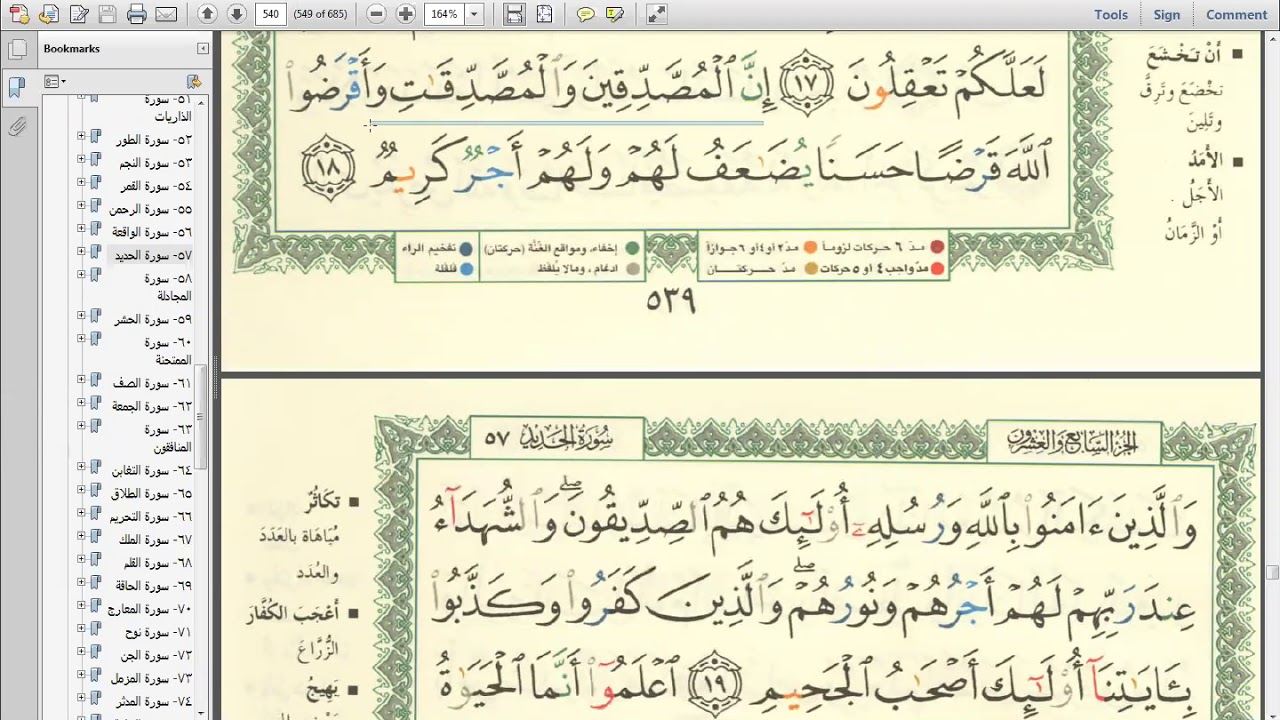 540 (549 of 685) 164% Tools Sign Comment
Bookmarks
٥١- سورة
الذاريات
٥٢- سورة الطور
٥٣- سورة النجم
٥٤- سورة القمر
٥٥- سورة الرحمن
٥٦- سورة الواقعة
٥٧- سورة الحديد
٥٨- سورة
المجادلة
٥٩- سورة الحشر
٦٠- سورة
الممتحنة
٦١- سورة الصف
٦٢- سورة الجمعة
٦٣- سورة
المنافقون
٦٤- سورة التغابن
٦٥- سورة الطلاق
٦٦- سورة التحريم
٦٧- سورة الملك
٦٨- سورة القلم
٦٩- سورة الحاقة
٧٠- سورة المعارج
٧١- سورة نوح
٧٢- سورة الجن
٧٣- سورة المزمل
٧٤- سورة المدثر
أَنْ تَخْشَعَ
تَخْضَعَ وَتَرِقَّ
وَتَلِينَ
الأَمَدُ
الأَجَلُ .
أَوِ الزَّمَانُ
لَعَلَّكُمْ تَعْقِلُونَ ١٧ إِنَّ ٱلْمُصَّدِّقِينَ وَٱلْمُصَّدِّقَٰتِ وَأَقْرَضُوا۟
ٱللَّهَ قَرْضًا حَسَنًا يُضَٰعَفُ لَهُمْ وَلَهُمْ أَجْرٌ كَرِيمٌ ١٨
مدّ ٦ حركات لزوماً مدّ٢ او٤ او ٦ جوازاً إخفاء، ومواقع الغُنَّة (حركتان) تفخيم الراء
مدّ واجب ٤ أو ٥ حركات مدّ حركتان ادغام ، ومالا يُلفَظ قلقلة
٥٣٩
الجزء السابع والعشرون سُورَةُ الحَدِيدِ ٥٧
وَٱلَّذِينَ ءَامَنُوا۟ بِٱللَّهِ وَرُسُلِهِۦٓ أُو۟لَٰٓئِكَ هُمُ ٱلصِّدِّيقُونَ ۖ وَٱلشُّهَدَآءُ
عِندَ رَبِّهِمْ لَهُمْ أَجْرُهُمْ وَنُورُهُمْ ۖ وَٱلَّذِينَ كَفَرُوا۟ وَكَذَّبُوا۟
بِـَٔايَٰتِنَآ أُو۟لَٰٓئِكَ أَصْحَٰبُ ٱلْجَحِيمِ ١٩ ٱعْلَمُوٓا۟ أَنَّمَا ٱلْحَيَوٰةُ
تَكَاثُرٌ
مُبَاهَاة بالعَدَد
والعُدَد
أَعْجَبَ الكُفَّارَ
الزُّرَّاعَ
يَهِيجُ